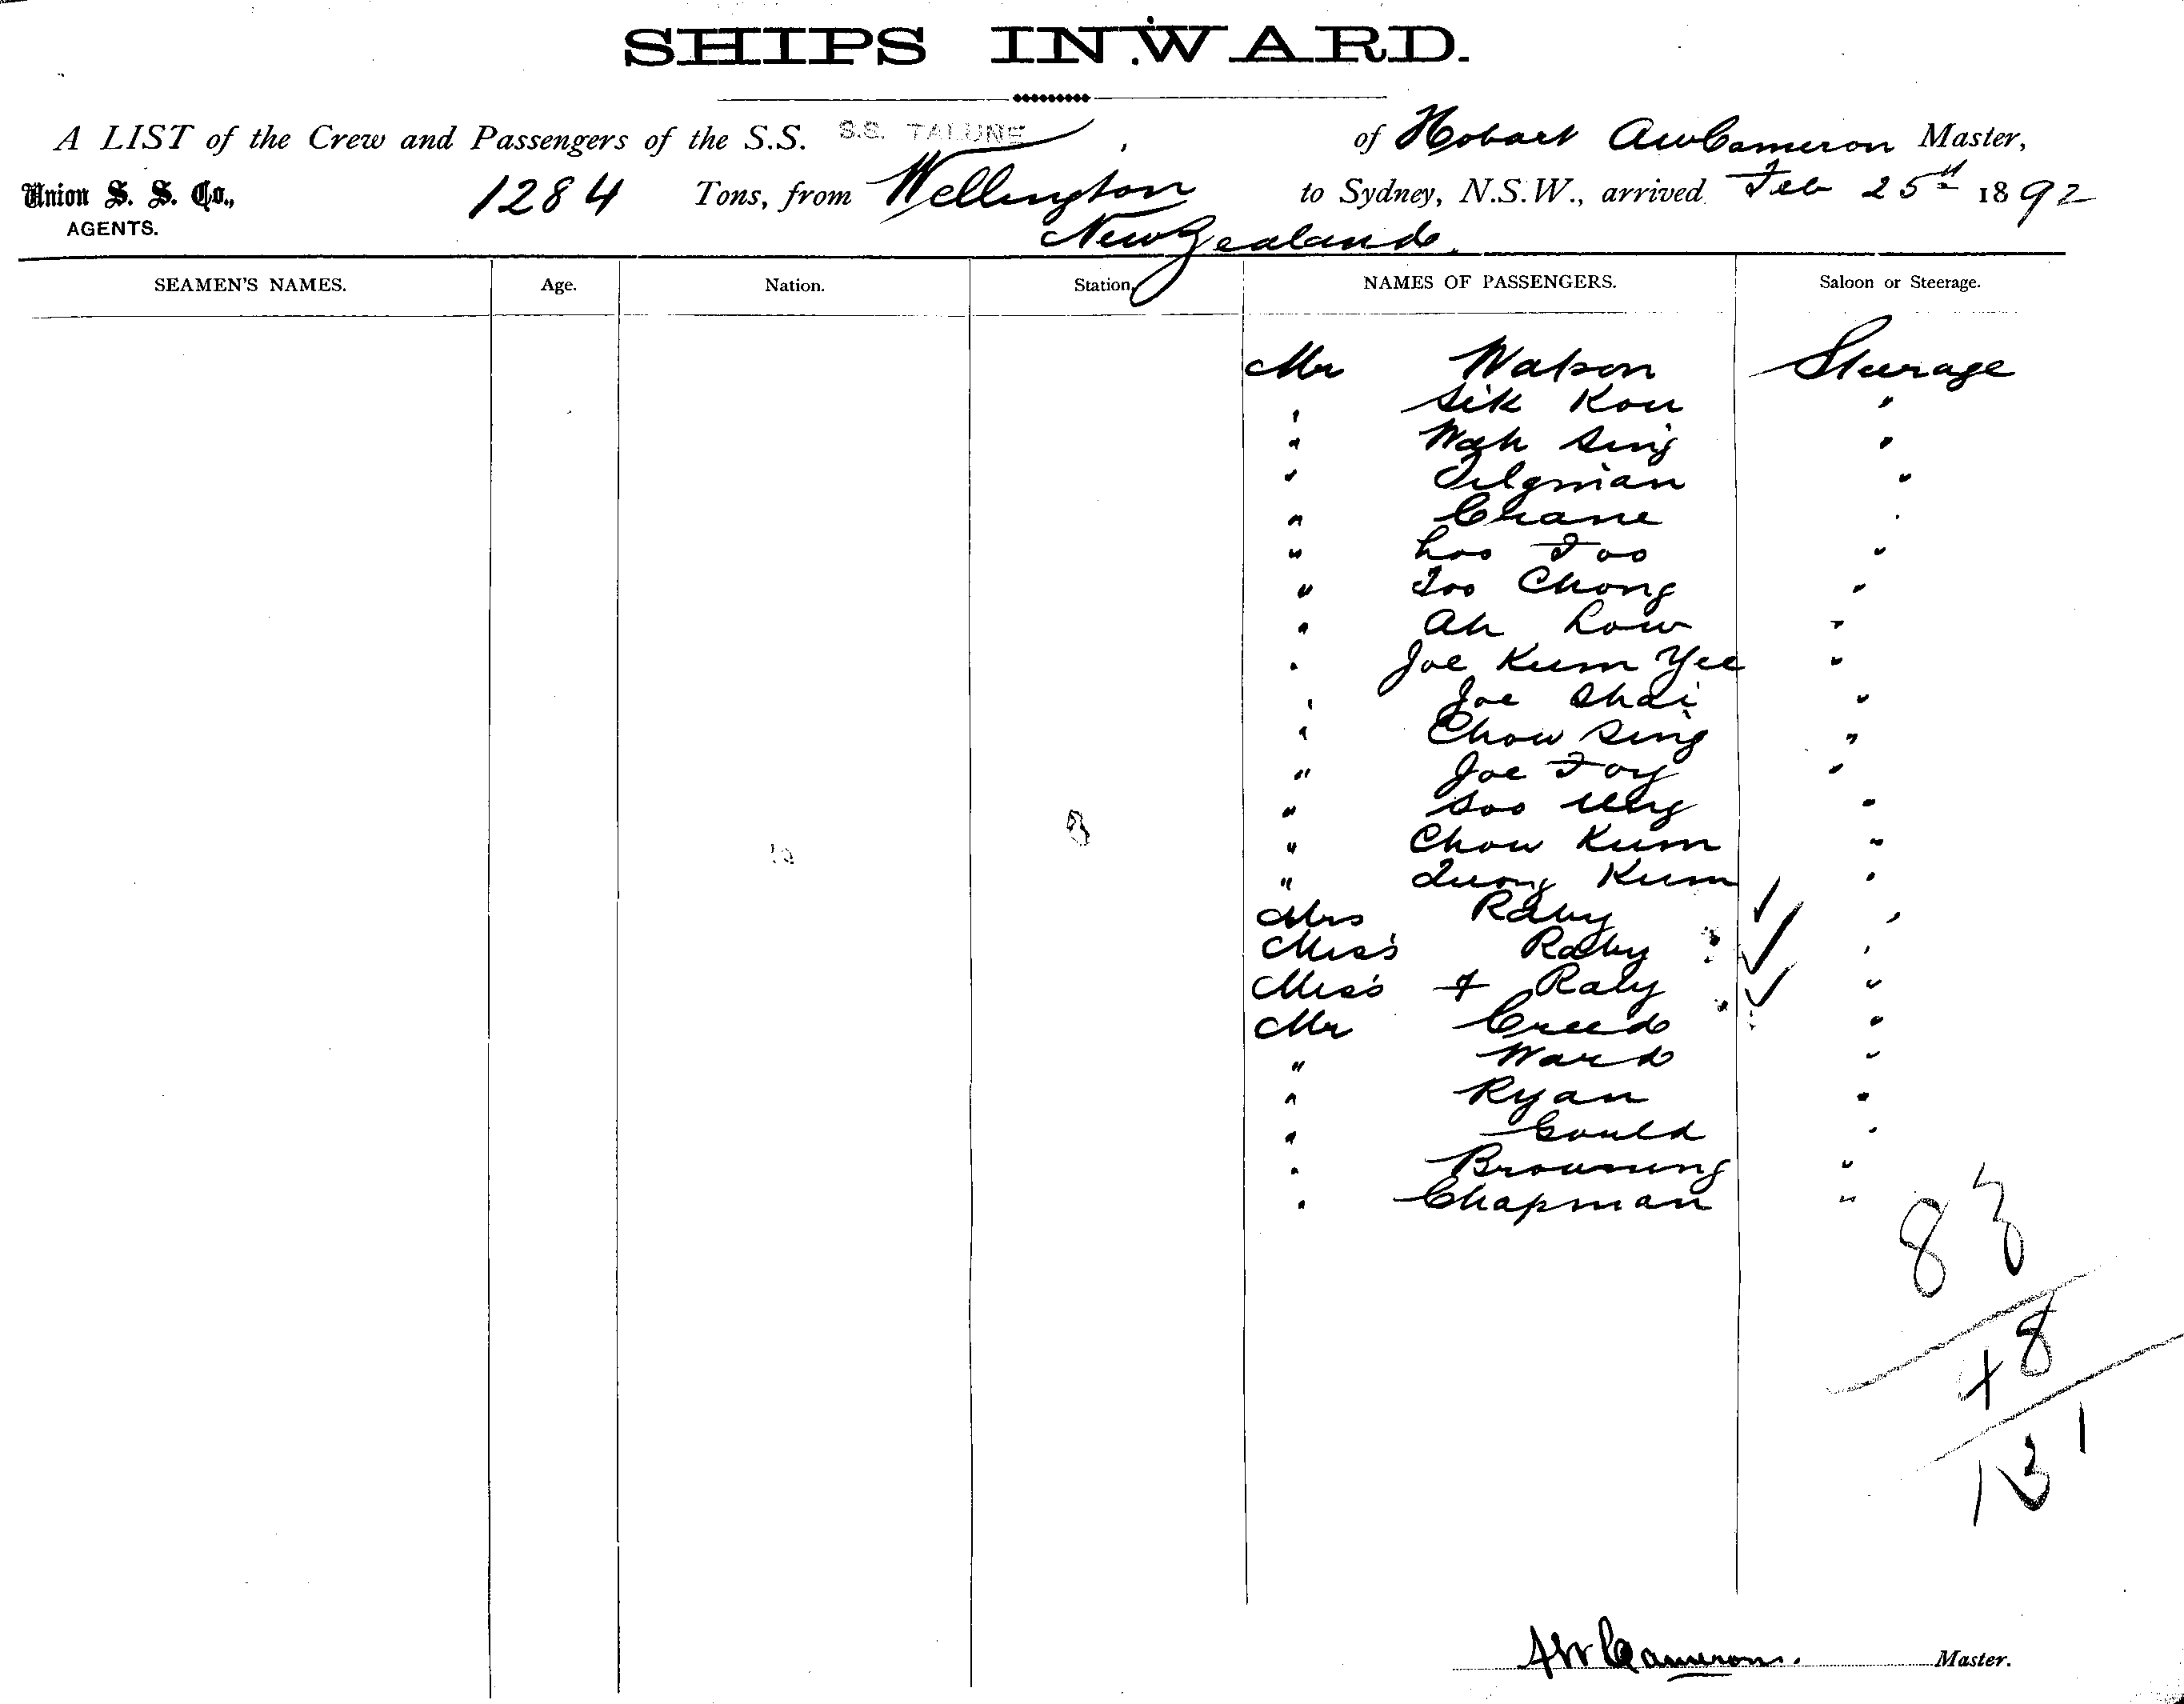 SHIPS INWARD.
A LIST of the Crew and Passengers of the S.S. S.S. TALUNE of Hobart AWCameron Master,
Union S. S. Co., 1284 Tons, from Wellington to Sydney, N.S.W., arrived Feb 25th 1892
AGENTS.
New Zealand.
SEAMEN'S NAMES. Age. Nation. Station. NAMES OF PASSENGERS. Saloon or Steerage.
Mr Watson Steerage
" Sik Kou "
" Wah Sing "
" Tilgman "
" Crane "
" Loo Foo "
" Foo Chong "
" Ah Low "
" Joe Kum Yee "
" Joe Shai "
" Chow Sing "
" Joe Foy "
" Soo "
" Chow Kum "
" Quong Kum "
Mrs Raby ✓ "
Miss Raby ✓ "
Miss F Raby ✓ "
Mr Creed "
" Ward "
" Ryan "
" Gould "
" Browning "
" Chapman "
83
+ 8
131
AW Cameron. Master.